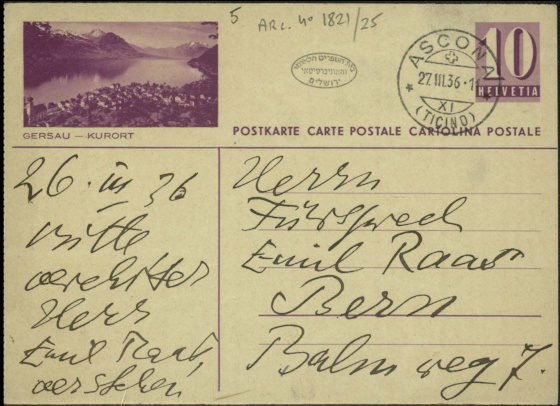 5 ARC. 4° 1821/25
בית הספרים הלאומי
והאוניברסיטאי
ירושלים
ASCONA
27.III.36
XI
(TICINO)
10
HELVETIA
GERSAU — KURORT
POSTKARTE CARTE POSTALE CARTOLINA POSTALE
26. III 36
bitte
verehrter
Herr
Emil Raas,
verstehen
Herrn
Fürsprech
Emil Raas
Bern
Balmweg 7.